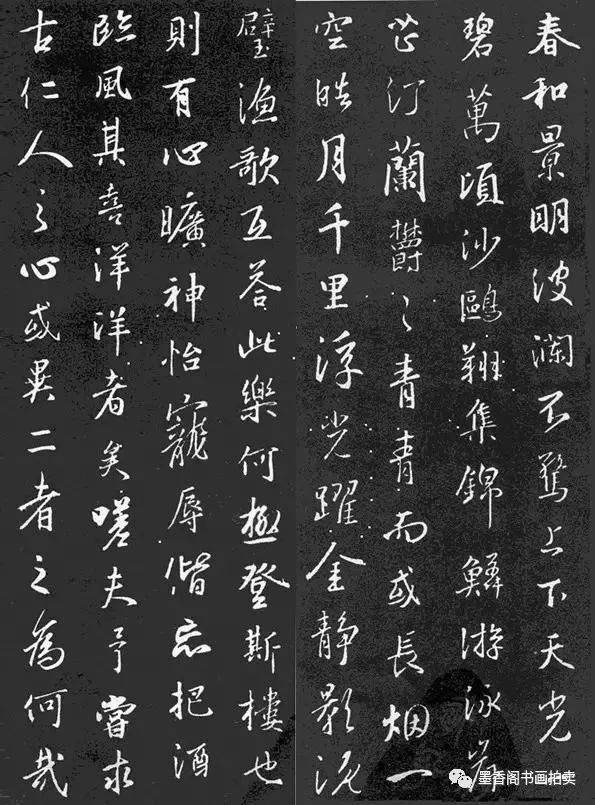 春和景明波瀾不驚上下天光
碧萬頃沙鷗翔集錦鱗游泳岸
芷汀蘭鬱々青青而或長烟一
空皓月千里浮光躍金靜影沉
璧漁歌互答此樂何極登斯樓也
則有心曠神怡寵辱偕忘把酒
臨風其喜洋洋者矣嗟夫予嘗求
古仁人之心或異二者之為何哉
墨香阁书画拍卖